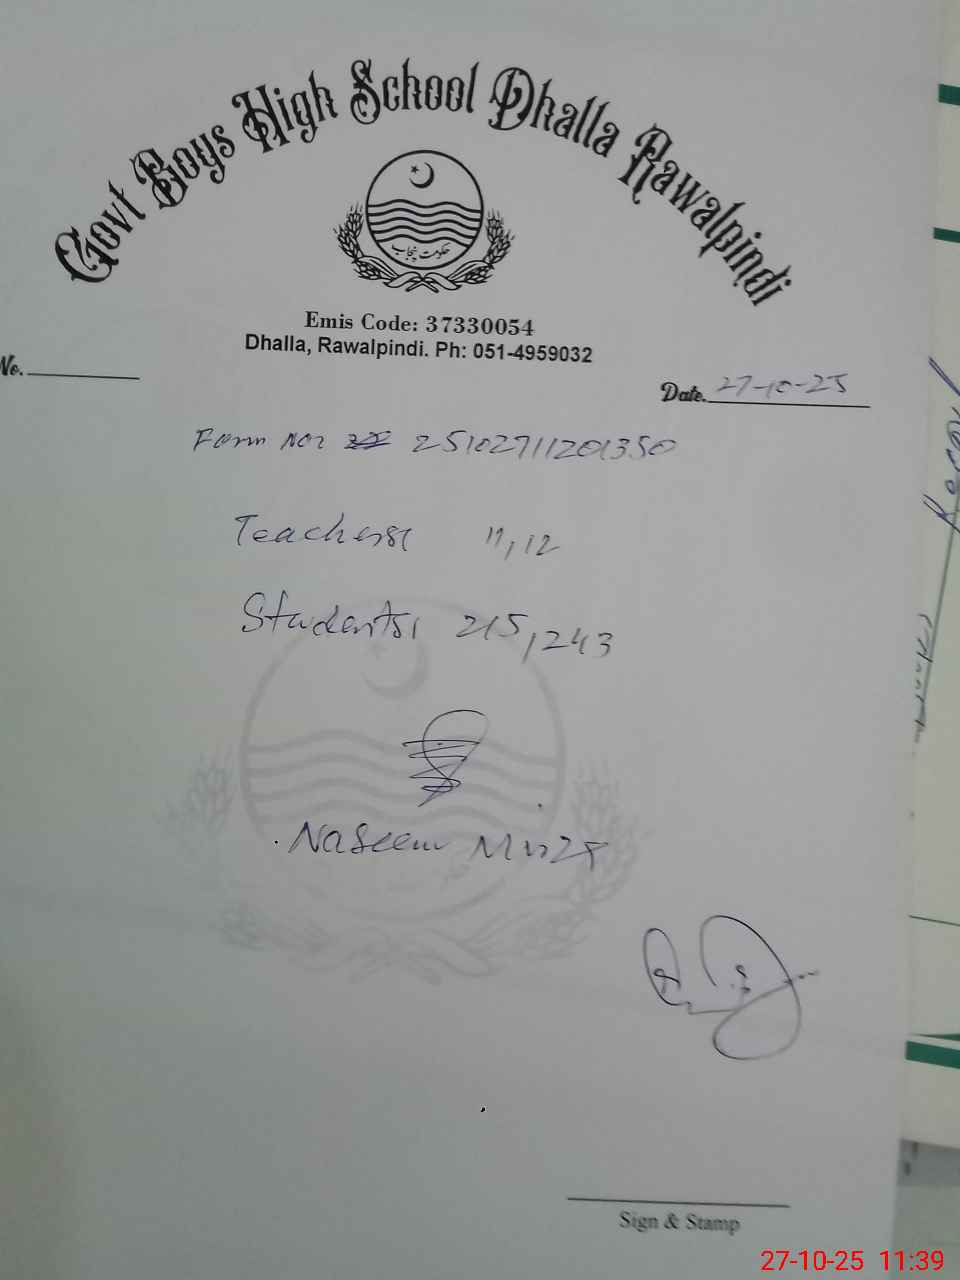 Govt Boys High School Dhalla Rawalpindi
حکومت پنجاب
Emis Code: 37330054
Dhalla, Rawalpindi. Ph: 051-4959032
No.
Date. 27-10-25
Form No: 25102711201350
Teachers: 11, 12
Students: 215, 243
Naseem Mirza
Sign & Stamp
27-10-25 11:39